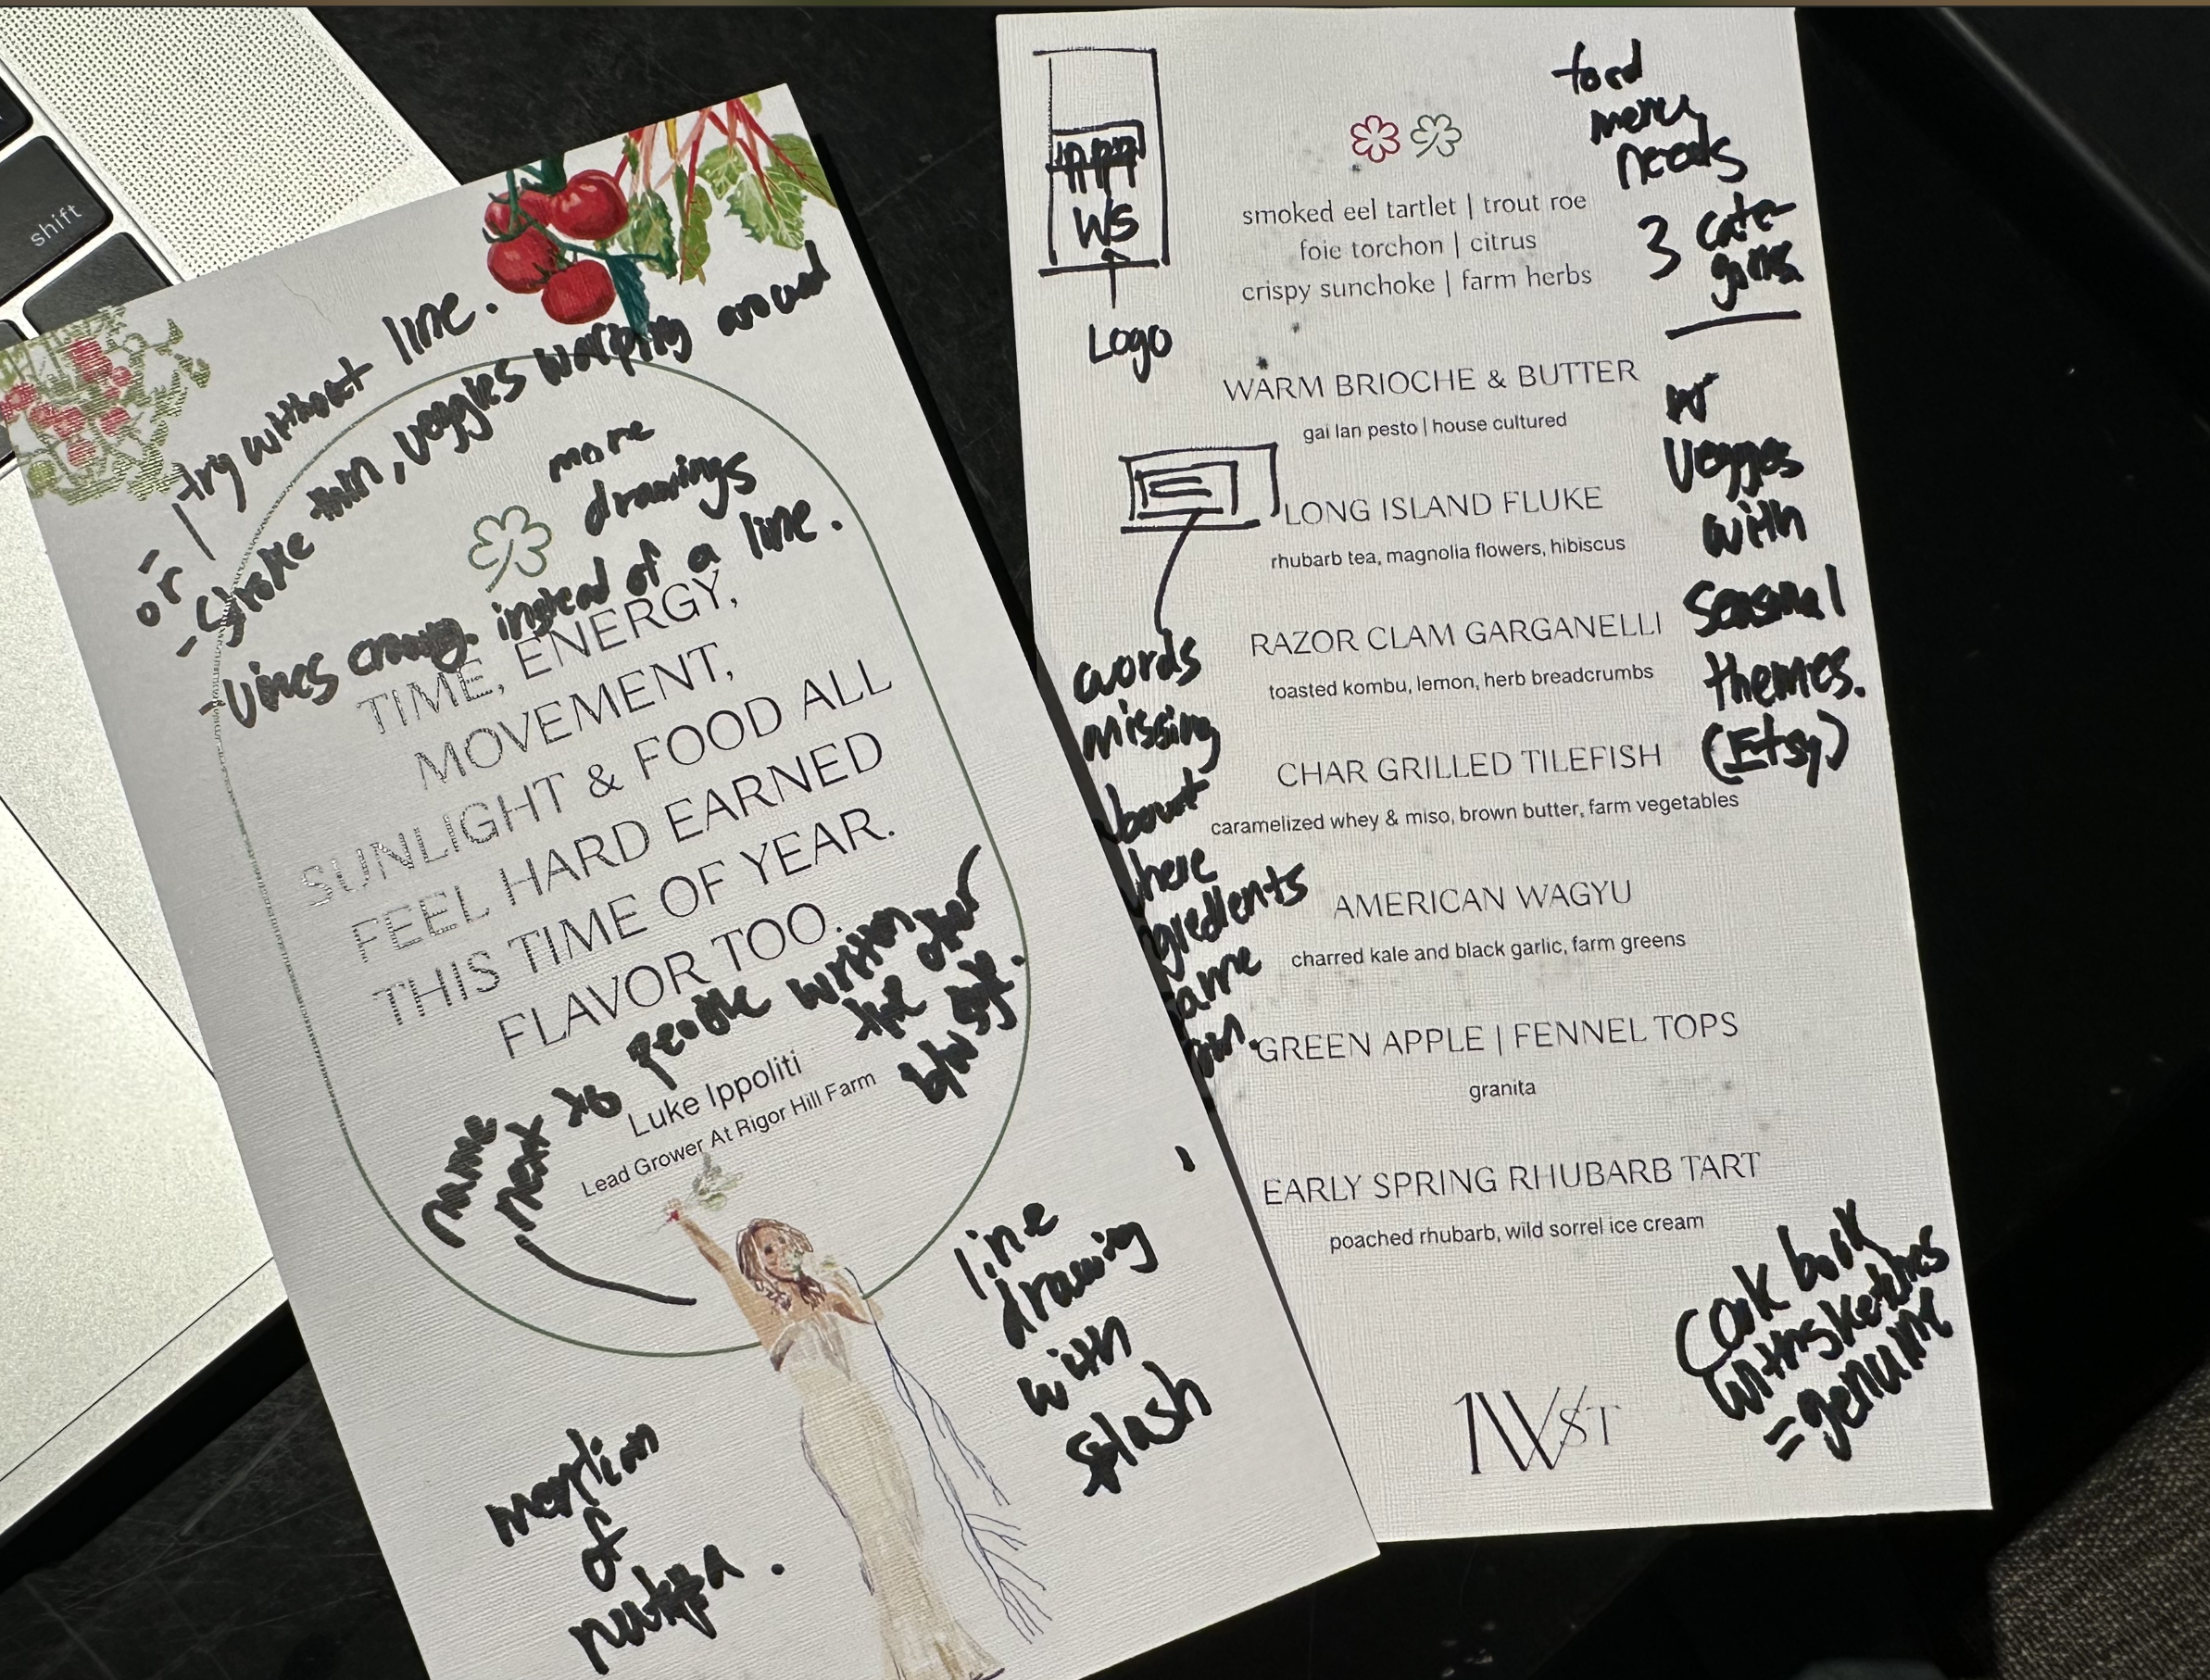 shift
or
try without line.
- stroke thin, veggies warping around
more
drawings
- vines instead of a line.
TIME, ENERGY,
MOVEMENT,
SUNLIGHT & FOOD ALL
FEEL HARD EARNED
THIS TIME OF YEAR.
FLAVOR TOO.
name
next to people written
the other
Luke Ippoliti
Lead Grower At Rigor Hill Farm
line
drawing
with
splash
mention
of
WS
Logo
food
menu
needs
3 cate-
smoked eel tartlet | trout roe
foie torchon | citrus
crispy sunchoke | farm herbs
WARM BRIOCHE & BUTTER
gai lan pesto | house cultured
LONG ISLAND FLUKE
rhubarb tea, magnolia flowers, hibiscus
RAZOR CLAM GARGANELLI
toasted kombu, lemon, herb breadcrumbs
CHAR GRILLED TILEFISH
caramelized whey & miso, brown butter, farm vegetables
AMERICAN WAGYU
charred kale and black garlic, farm greens
GREEN APPLE | FENNEL TOPS
granita
EARLY SPRING RHUBARB TART
poached rhubarb, wild sorrel ice cream
veggies
with
seasonal
themes.
(Etsy)
words
missing
bout
here
gredients
ame
Cook book
sketches
= genuine
1W ST